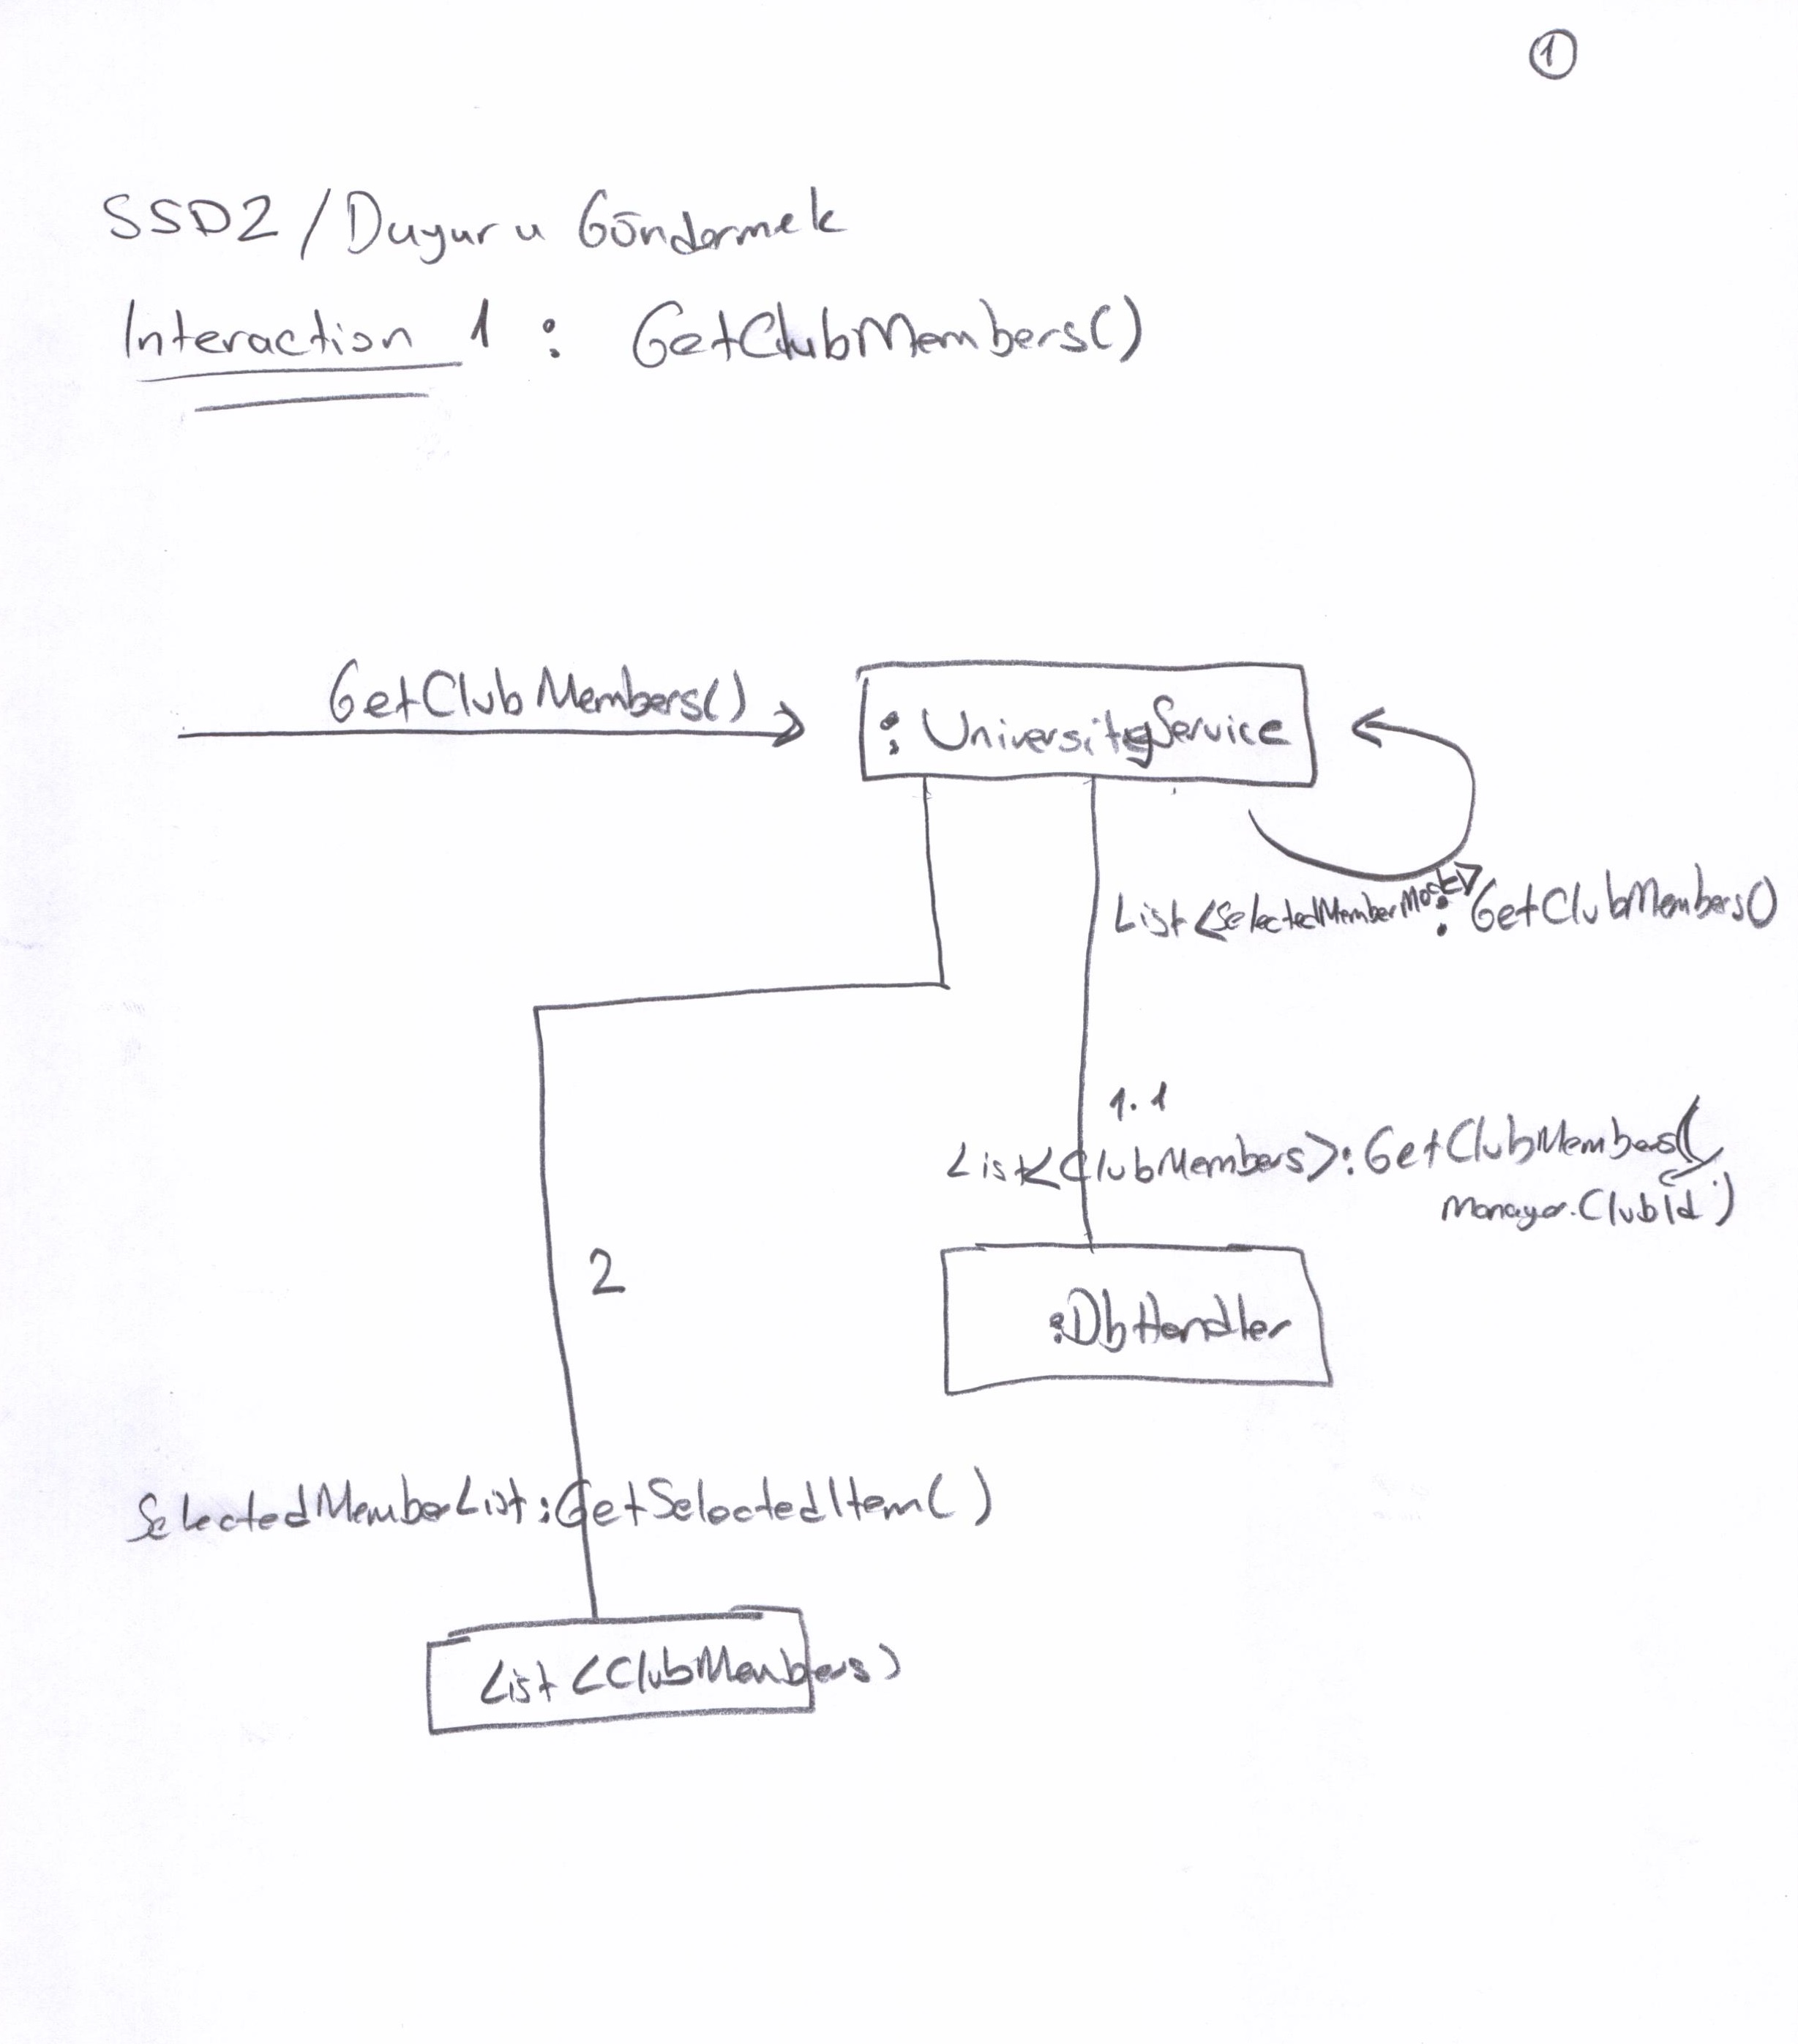 1
SSD2 / Duyuru Göndermek
Interaction 1 : GetClubMembers()
GetClubMembers()
: UniversityService
List <SelectedMemberModel> : GetClubMembers()
1.1
List<ClubMembers>:GetClubMembers(
manager.ClubId)
2
:DbHandler
SelectedMemberList:GetSelectedItem()
List <ClubMembers>